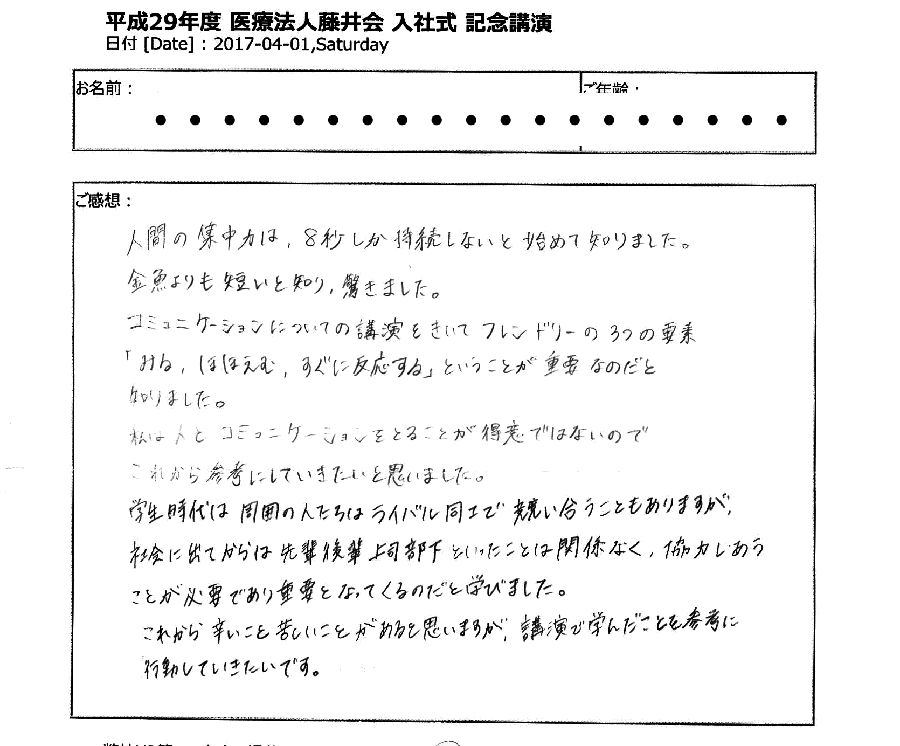 平成29年度 医療法人藤井会 入社式 記念講演
日付 [Date] : 2017-04-01,Saturday
お名前：
ご年齢：
ご感想：
人間の集中力は、8秒しか持続しないと始めて知りました。
金魚よりも短いと知り、驚きました。
コミュニケーションについての講演をきいてフレンドリーの3つの要素
「みる、ほほえむ、すぐに反応する」ということが重要なのだと
知りました。
私は人とコミュニケーションをとることが得意ではないので
これから参考にしていきたいと思いました。
学生時代は周囲の人たちはライバル同士で競い合うこともありますが、
社会に出てからは先輩後輩上司部下といったことは関係なく、協力しあう
ことが必要であり重要となってくるのだと学びました。
これから辛いこと苦しいことがあると思いますが、講演で学んだことを参考に
行動していきたいです。